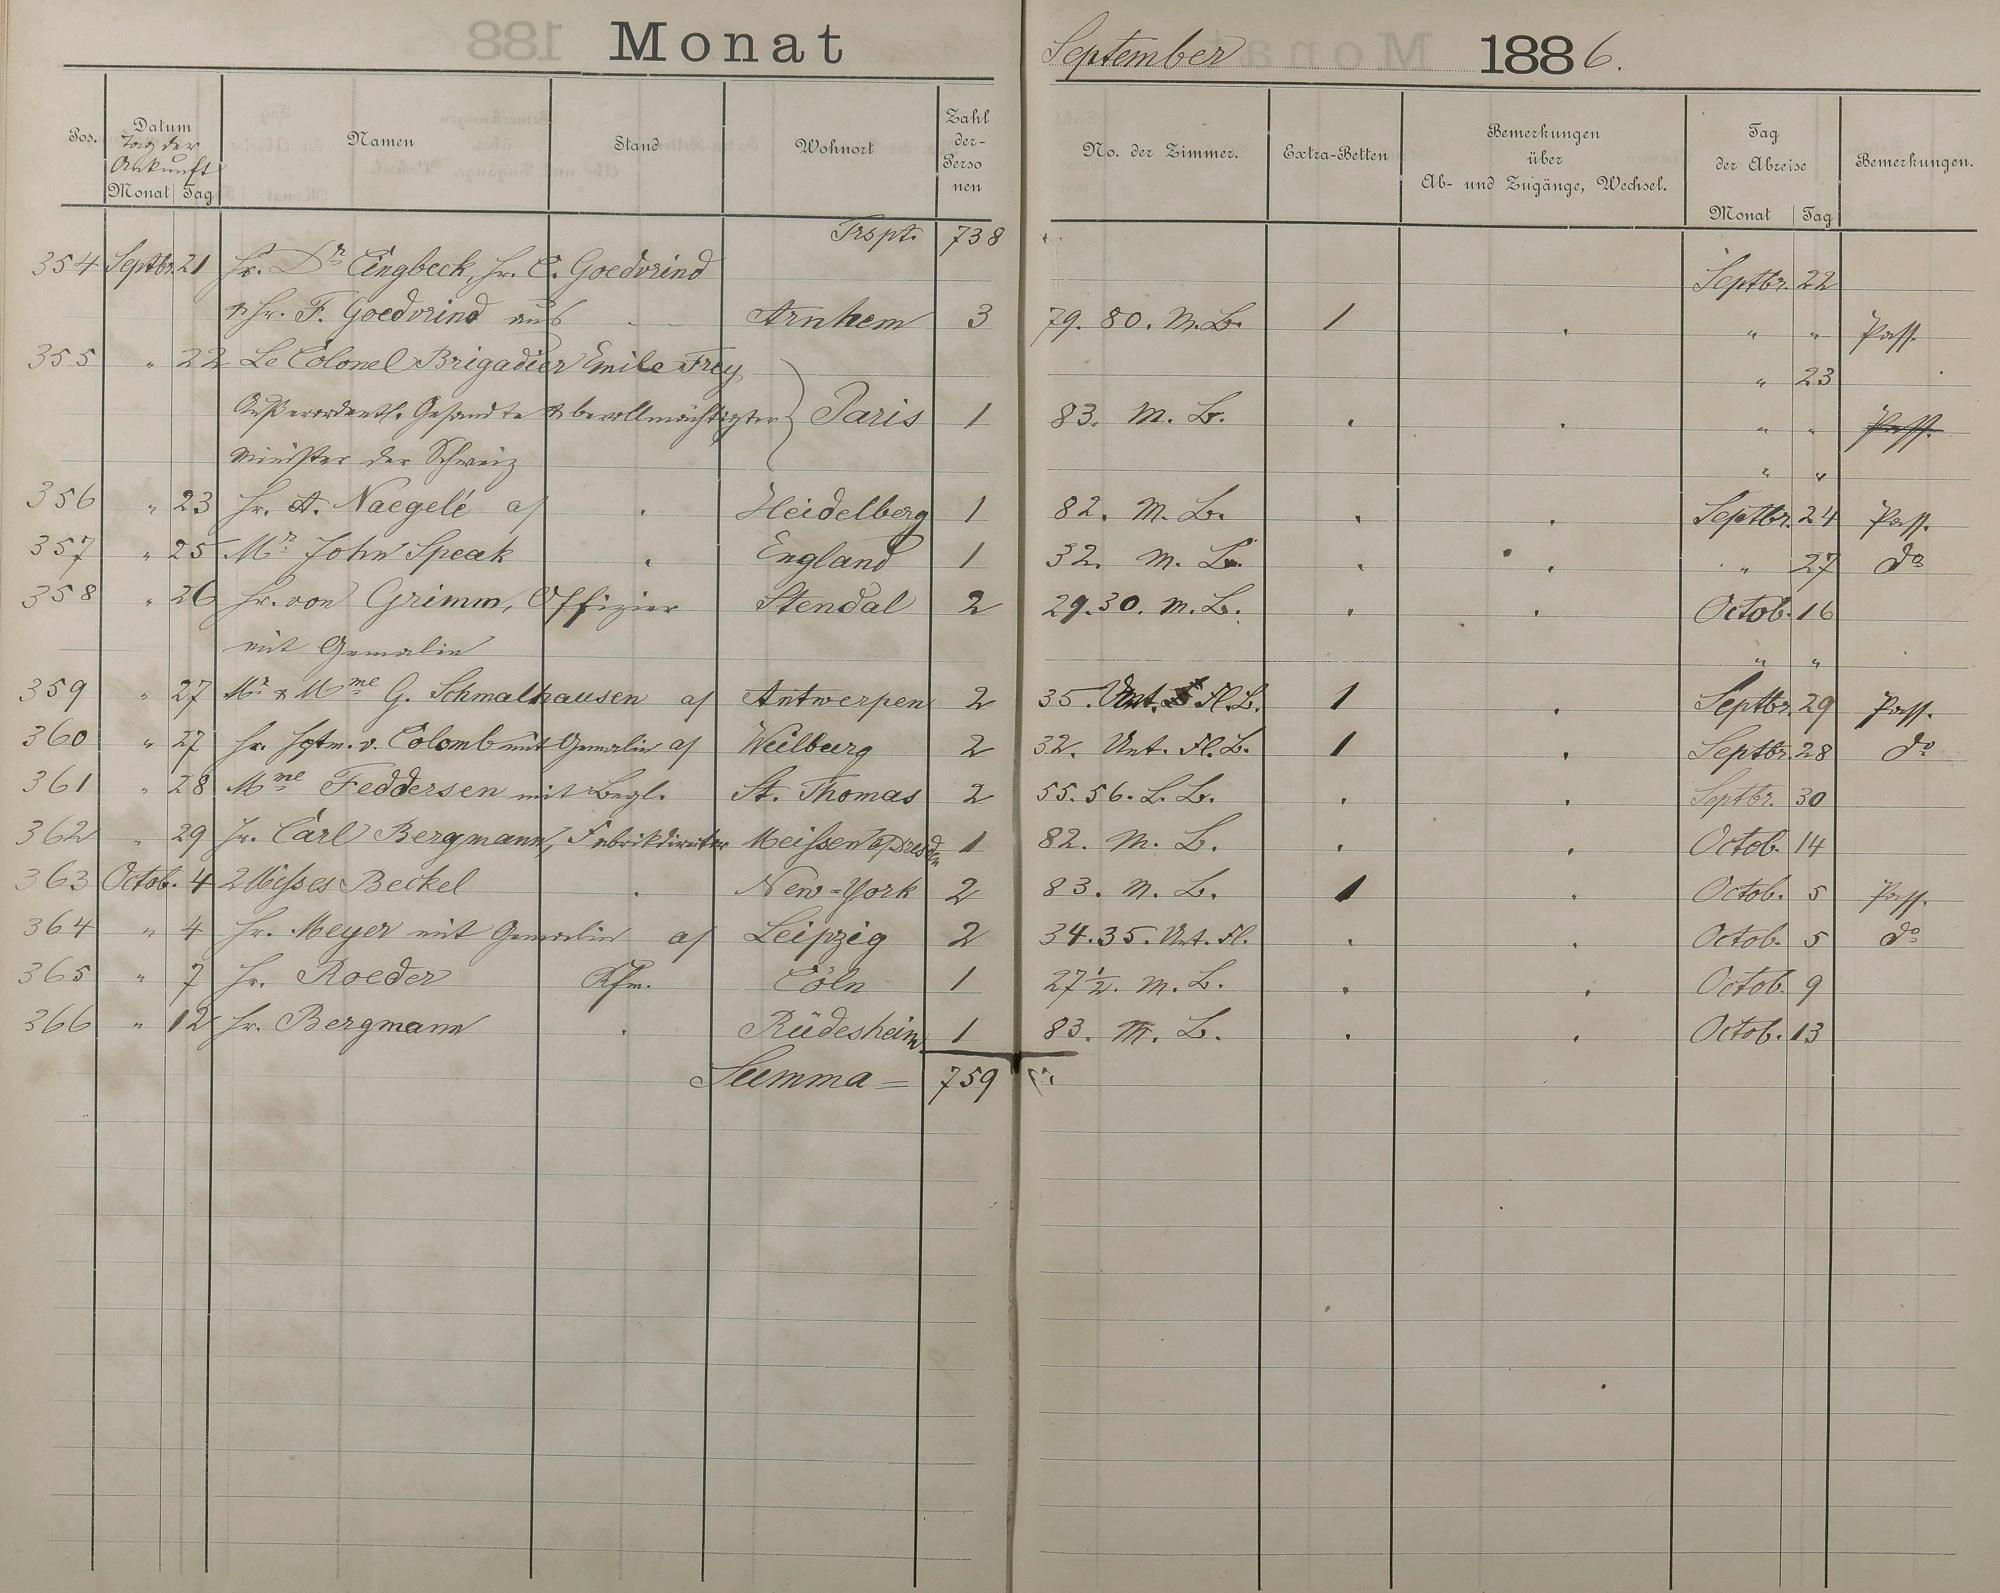 Monat September 1886.
Pos. Datum Tag der Ankunft Monat Tag Namen Stand Wohnort Zahl der Perso nen No. der Zimmer. Extra-Betten Bemerkungen über Ab- und Zugänge, Wechsel. Tag der Abreise Monat Tag Bemerkungen.
Trspt. 738
354 Septbr. 21 Hr. Dr. Eingbeck, Hr. C. Goedvrind Septbr. 22
& Hr. F. Goedvrind aus Arnhem 3 79. 80. M. B. 1 " " Pass.
355 " 22 Le Colonel Brigadier Emile Frey " 23
Außerordentl. Gesandte & bevollmächtigter Paris 1 83. M. B. " " Pass.
Minister der Schweiz " "
356 " 23 Hr. A. Naegelé a/ Heidelberg 1 82. M. B. Septbr. 24 Pass.
357 " 25 Mr. John Speak England 1 32. M. B. " 27 do
358 " 26 Hr. von Grimm, Offizier Stendal 2 29. 30. M. B. Octob. 16
mit Gemalin " "
359 " 27 Mr. & Mme G. Schmalhausen a/ Antwerpen 2 35. Unt. Fl. B. 1 Septbr. 29 Pass.
360 " 27 Hr. Hptm. v. Colomb mit Gemalin a/ Weilburg 2 32. Unt. Fl. B. 1 Septbr. 28 do
361 " 28 Mme Feddersen mit Begl. St. Thomas 2 55. 56. L. B. Septbr. 30
362 " 29 Hr. Carl Bergmann, Fabrikdirector Meissen b/Dresden 1 82. M. B. Octob. 14
363 Octob. 4 2 Misses Beckel New-York 2 83. M. B. 1 Octob. 5 Pass.
364 " 4 Hr. Meyer mit Gemalin a/ Leipzig 2 34. 35. Unt. Fl. Octob. 5 do
365 " 7 Hr. Roeder Kfm. Cöln 1 27 1/2. M. B. Octob. 9
366 " 12 Hr. Bergmann Rüdesheim 1 83. M. B. Octob. 13
Summa = 759